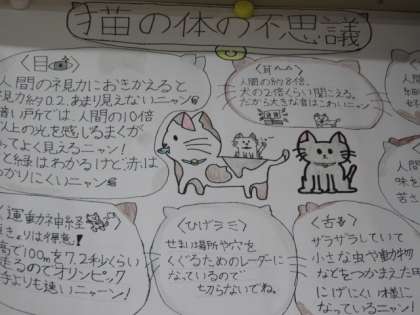 猫の体の不思議
<目>
人間の視力におきかえると
視力約0.2、あまり見えないニャン
暗い所では、人間の10倍
以上の光を感じるまくが
ってよく見えるニャン!
と緑はわかるけど赤は
かりにくいニャン
<耳へへ>
人間の約8倍、
犬の2倍くらい聞こえる。
だから大きな音はこわいニャン
人間
味を
苦さ
<運動神経>
きょりは得意!
高で100mを7.2秒くらい
走るのでオリンピック
手よりも速いニャーン!
<ひげ三ミ>
せまい場所や穴を
くぐるためのレーダーに
なっているので
切らないでね。
<舌>
ザラザラしていて
小さな虫や動物
などをつかまえた時
にげにくい様に
なっているニャン!